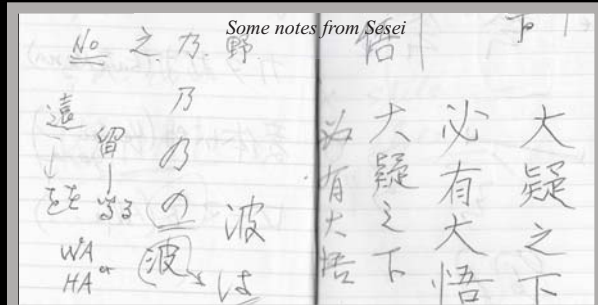 Some notes from Sesei
No 之 乃 野
乃
遠 留 乃
を る の 波
WA or HA 波 は
悟
下
大疑之下
必有大悟
大疑之下
必有大悟